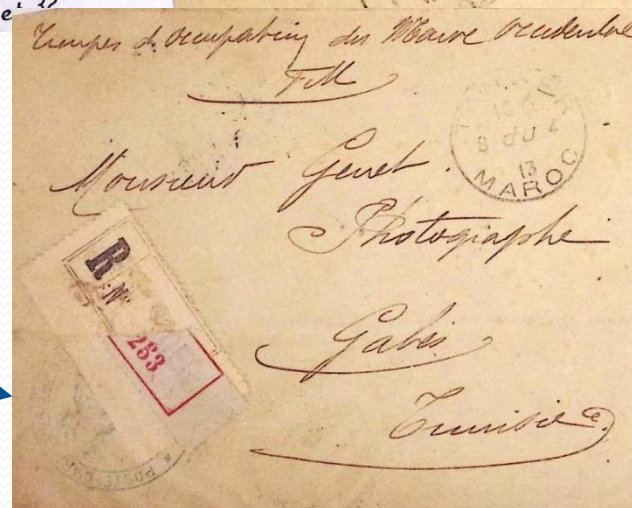 et
Troupes d'occupation du Maroc Occidental
FM
8 4
13
MAROC
Monsieur Genet
Photographe
R
N°
253
Gabès
Tunisie
POSTE